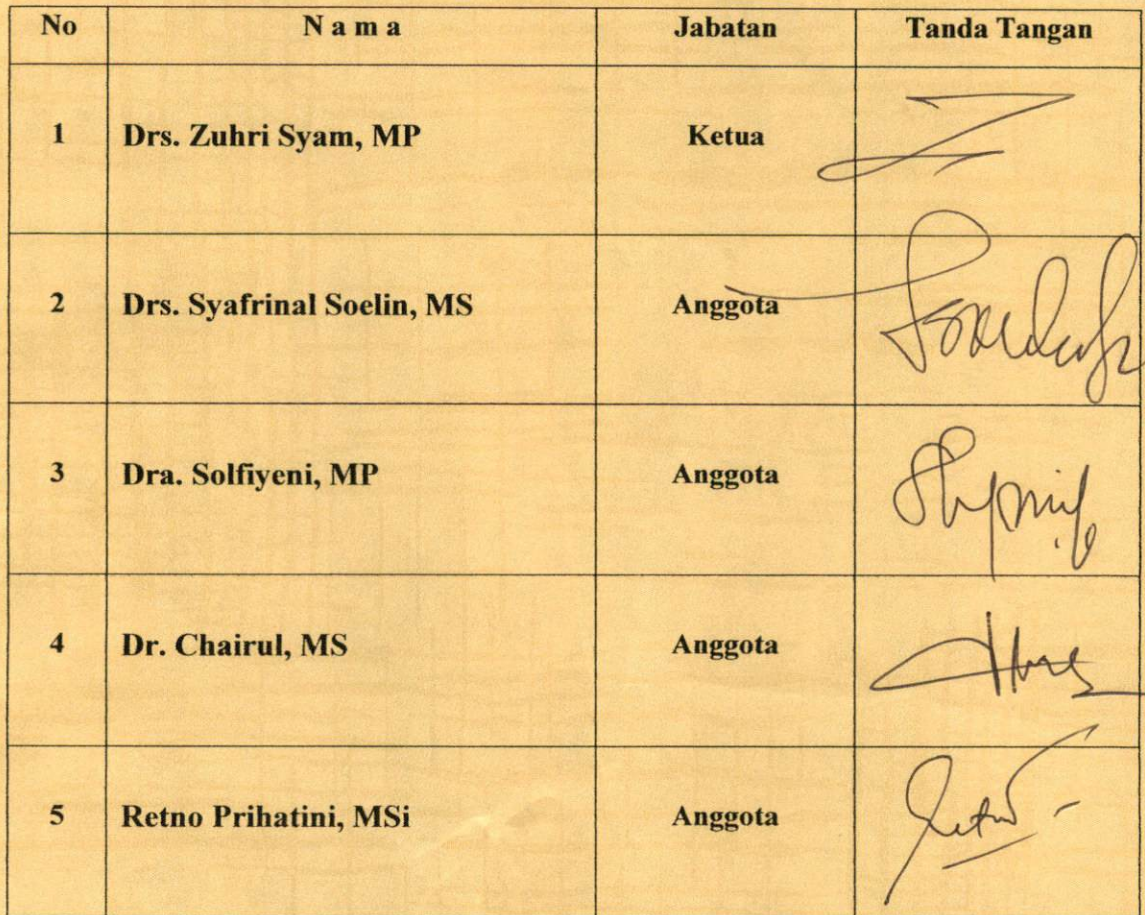 No N a m a Jabatan Tanda Tangan
1 Drs. Zuhri Syam, MP Ketua
2 Drs. Syafrinal Soelin, MS Anggota
3 Dra. Solfiyeni, MP Anggota
4 Dr. Chairul, MS Anggota
5 Retno Prihatini, MSi Anggota